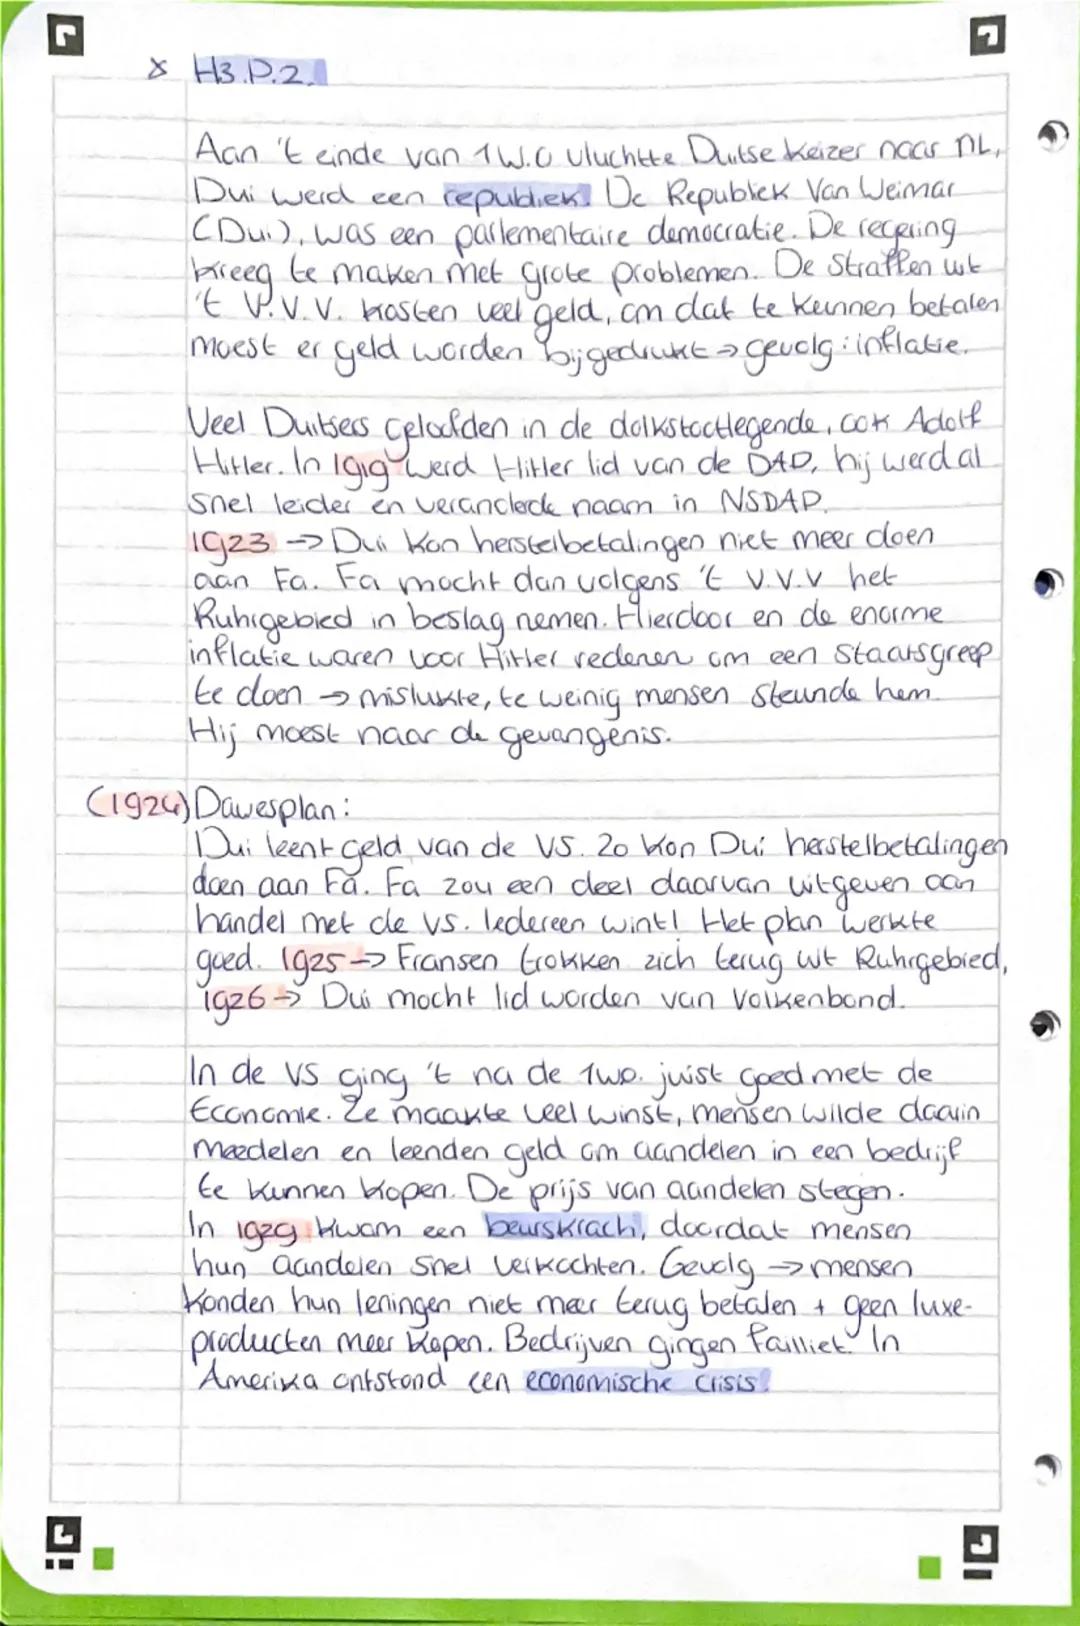 H3.P.2.
Aan 't einde van 1W.O vluchtte Duitse keizer naar NL,
Dui werd een republiek. De Republiek Van Weimar
(Dui), was een parlementaire democratie. De regering
kreeg te maken met grote problemen. De straffen uit
't V.V.V. kosten veel geld, om dat te kunnen betalen
moest er geld worden bijgedrukt → gevolg: inflatie.
Veel Duitsers geloofden in de dolkstootlegende, ook Adolf
Hitler. In 1919 werd Hitler lid van de DAD, hij werd al
snel leider en veranderde naam in NSDAP.
1923 → Dui kon herstelbetalingen niet meer doen
aan Fa. Fa mocht dan volgens 't V.V.V het
Ruhrgebied in beslag nemen. Hierdoor en de enorme
inflatie waren voor Hitler redenen om een staatsgreep
te doen → mislukte, te weinig mensen steunde hem.
Hij moest naar de gevangenis.
(1924) Dawesplan:
Dui leent geld van de VS. Zo kon Dui herstelbetalingen
doen aan Fa. Fa zou een deel daarvan uitgeven aan
handel met de VS. Iedereen wint! Het plan werkte
goed. 1925 → Fransen trokken zich terug uit Ruhrgebied,
1926 → Dui mocht lid worden van Volkenbond.
In de VS ging 't na de 1wo. juist goed met de
Economie. Ze maakte veel winst, mensen wilde daarin
meedelen en leenden geld om aandelen in een bedrijf
te kunnen kopen. De prijs van aandelen stegen.
In 1929 kwam een beurskrach, doordat mensen
hun aandelen snel verkochten. Gevolg → mensen
konden hun leningen niet meer terug betalen + geen luxe-
producten meer kopen. Bedrijven gingen failliet. In
Amerika ontstond een economische crisis.